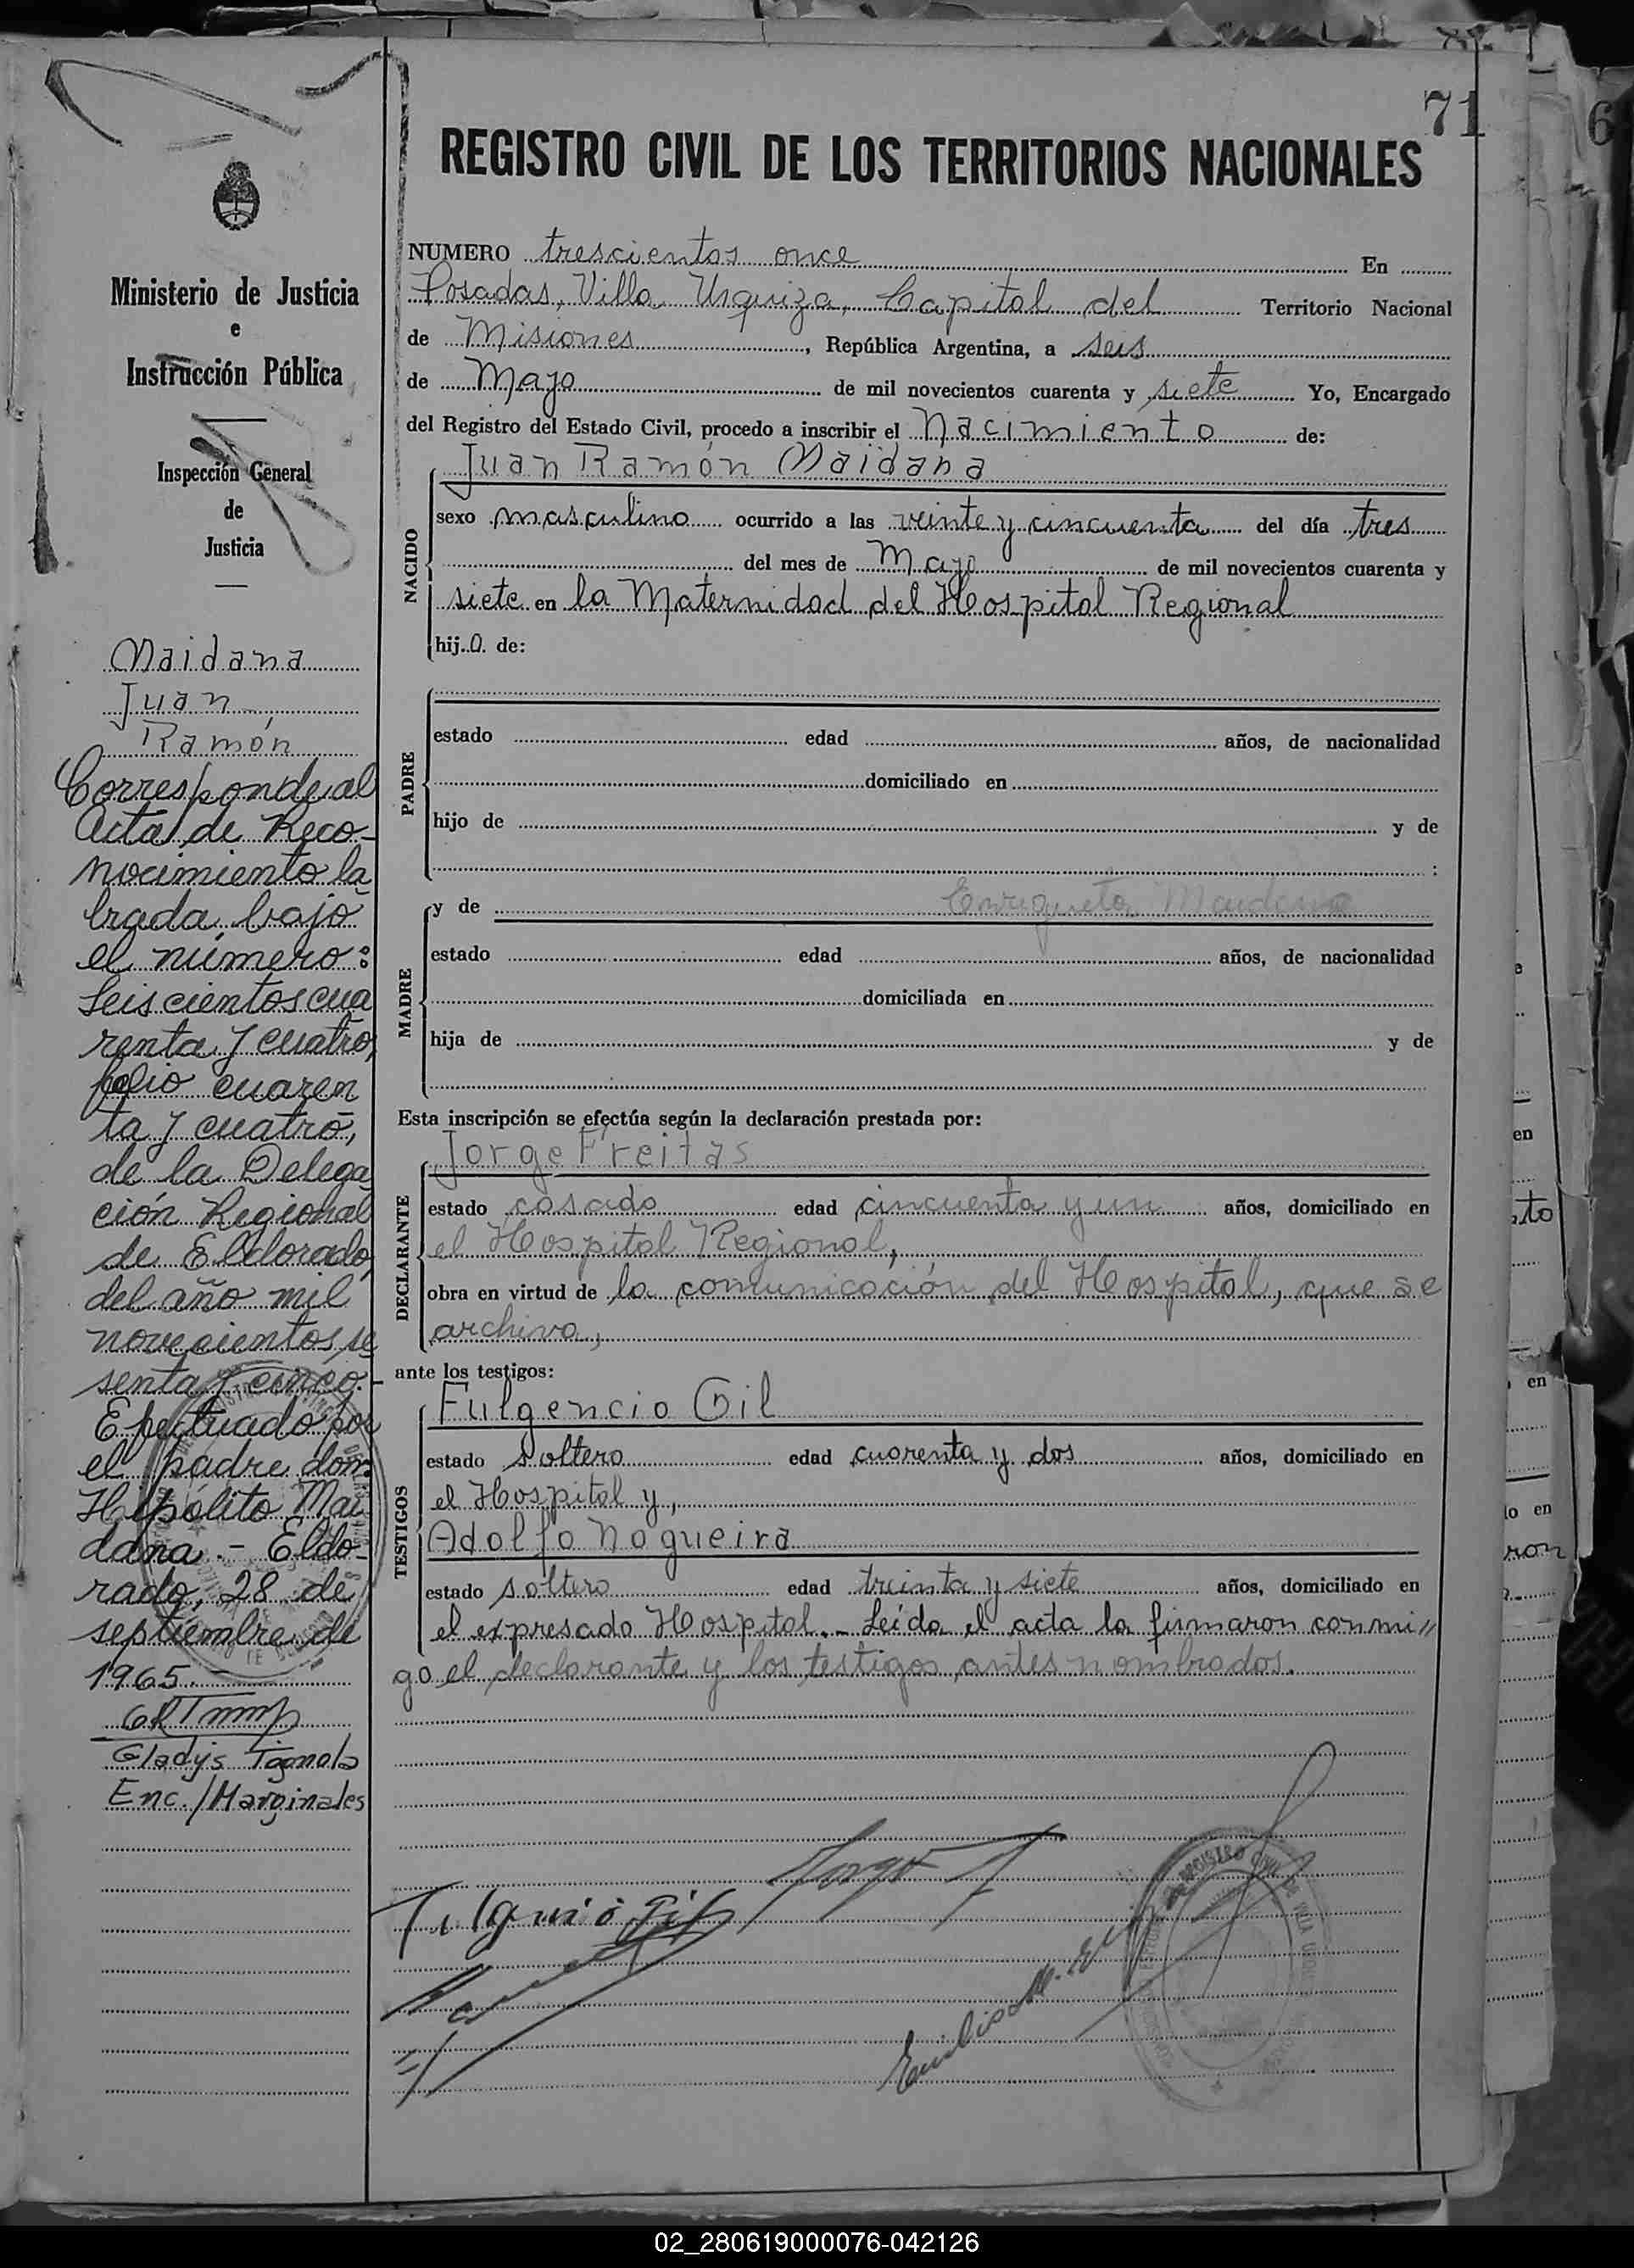 71
REGISTRO CIVIL DE LOS TERRITORIOS NACIONALES
NUMERO trescientos once En
Posadas, Villa Urquiza, Capital del Territorio Nacional
de Misiones, República Argentina, a seis
de Mayo de mil novecientos cuarenta y siete Yo, Encargado
del Registro del Estado Civil, procedo a inscribir el Nacimiento de:
NACIDO
Juan Ramón Maidana
sexo masculino ocurrido a las veinte y cincuenta del día tres
del mes de Mayo de mil novecientos cuarenta y
siete en la Maternidad del Hospital Regional
hijo de:
PADRE
estado edad años, de nacionalidad
domiciliado en
hijo de y de
:
MADRE
y de Enriqueta Maidana
estado edad años, de nacionalidad
domiciliada en
hija de y de
Esta inscripción se efectúa según la declaración prestada por:
DECLARANTE
Jorge Freitas
estado casado edad cincuenta y un años, domiciliado en
el Hospital Regional,
obra en virtud de la comunicación del Hospital, que se
archiva,
ante los testigos:
TESTIGOS
Fulgencio Gil
estado soltero edad cuarenta y dos años, domiciliado en
el Hospital y,
Adolfo Nogueira
estado soltero edad treinta y siete años, domiciliado en
el expresado Hospital.- Leída el acta la firmaron conmi//
go el declarante y los testigos antes nombrados.
Ministerio de Justicia
e
Instrucción Pública
Inspección General
de
Justicia
Maidana
Juan
Ramón
Corresponde al
Acta de Reco-
nocimiento la
brada bajo
el número:
Seiscientos cua
renta y cuatro,
folio cuaren
ta y cuatro,
de la Delega
ción Regional
de Eldorado,
del año mil
novecientos se
senta y cinco.-
Efectuado por
el padre don:
Hipólito Mai
dana.- Eldo-
rado, 28 de
septiembre de
1965.-
Gladys
Enc./Marginales
02_280619000076-042126